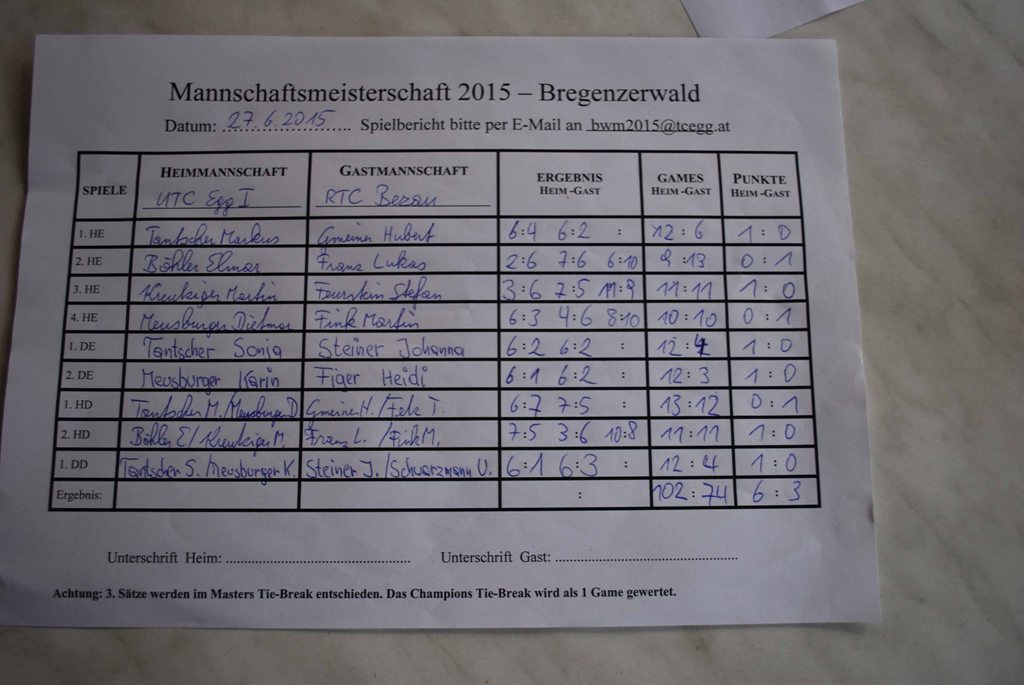 Mannschaftsmeisterschaft 2015 – Bregenzerwald
Datum: 27.6.2015 Spielbericht bitte per E-Mail an bwm2015@tcegg.at
SPIELE HEIMMANNSCHAFT UTC Egg I GASTMANNSCHAFT RTC Bezau ERGEBNIS HEIM -GAST GAMES HEIM -GAST PUNKTE HEIM -GAST
1. HE Tantscher Markus Gmeiner Hubert 6:4 6:2 : 12:6 1:0
2. HE Böhler Elmar Franz Lukas 2:6 7:6 6:10 9:13 0:1
3. HE Kreutziger Martin Feurstein Stefan 3:6 7:5 11:9 11:11 1:0
4. HE Meusburger Dietmar Fink Martin 6:3 4:6 8:10 10:10 0:1
1. DE Tantscher Sonja Steiner Johanna 6:2 6:2 : 12:4 1:0
2. DE Meusburger Karin Figer Heidi 6:1 6:2 : 12:3 1:0
1. HD Tantscher M./Meusburger D. Gmeiner H./Felz T. 6:7 7:5 : 13:12 0:1
2. HD Böhler E/Kreutziger M. Franz L. /Fink M. 7:5 3:6 10:8 11:11 1:0
1. DD Tantscher S./Meusburger K. Steiner J./Schwarzmann U. 6:1 6:3 : 12:4 1:0
Ergebnis: : 102:74 6:3
Unterschrift Heim: Unterschrift Gast:
Achtung: 3. Sätze werden im Masters Tie-Break entschieden. Das Champions Tie-Break wird als 1 Game gewertet.